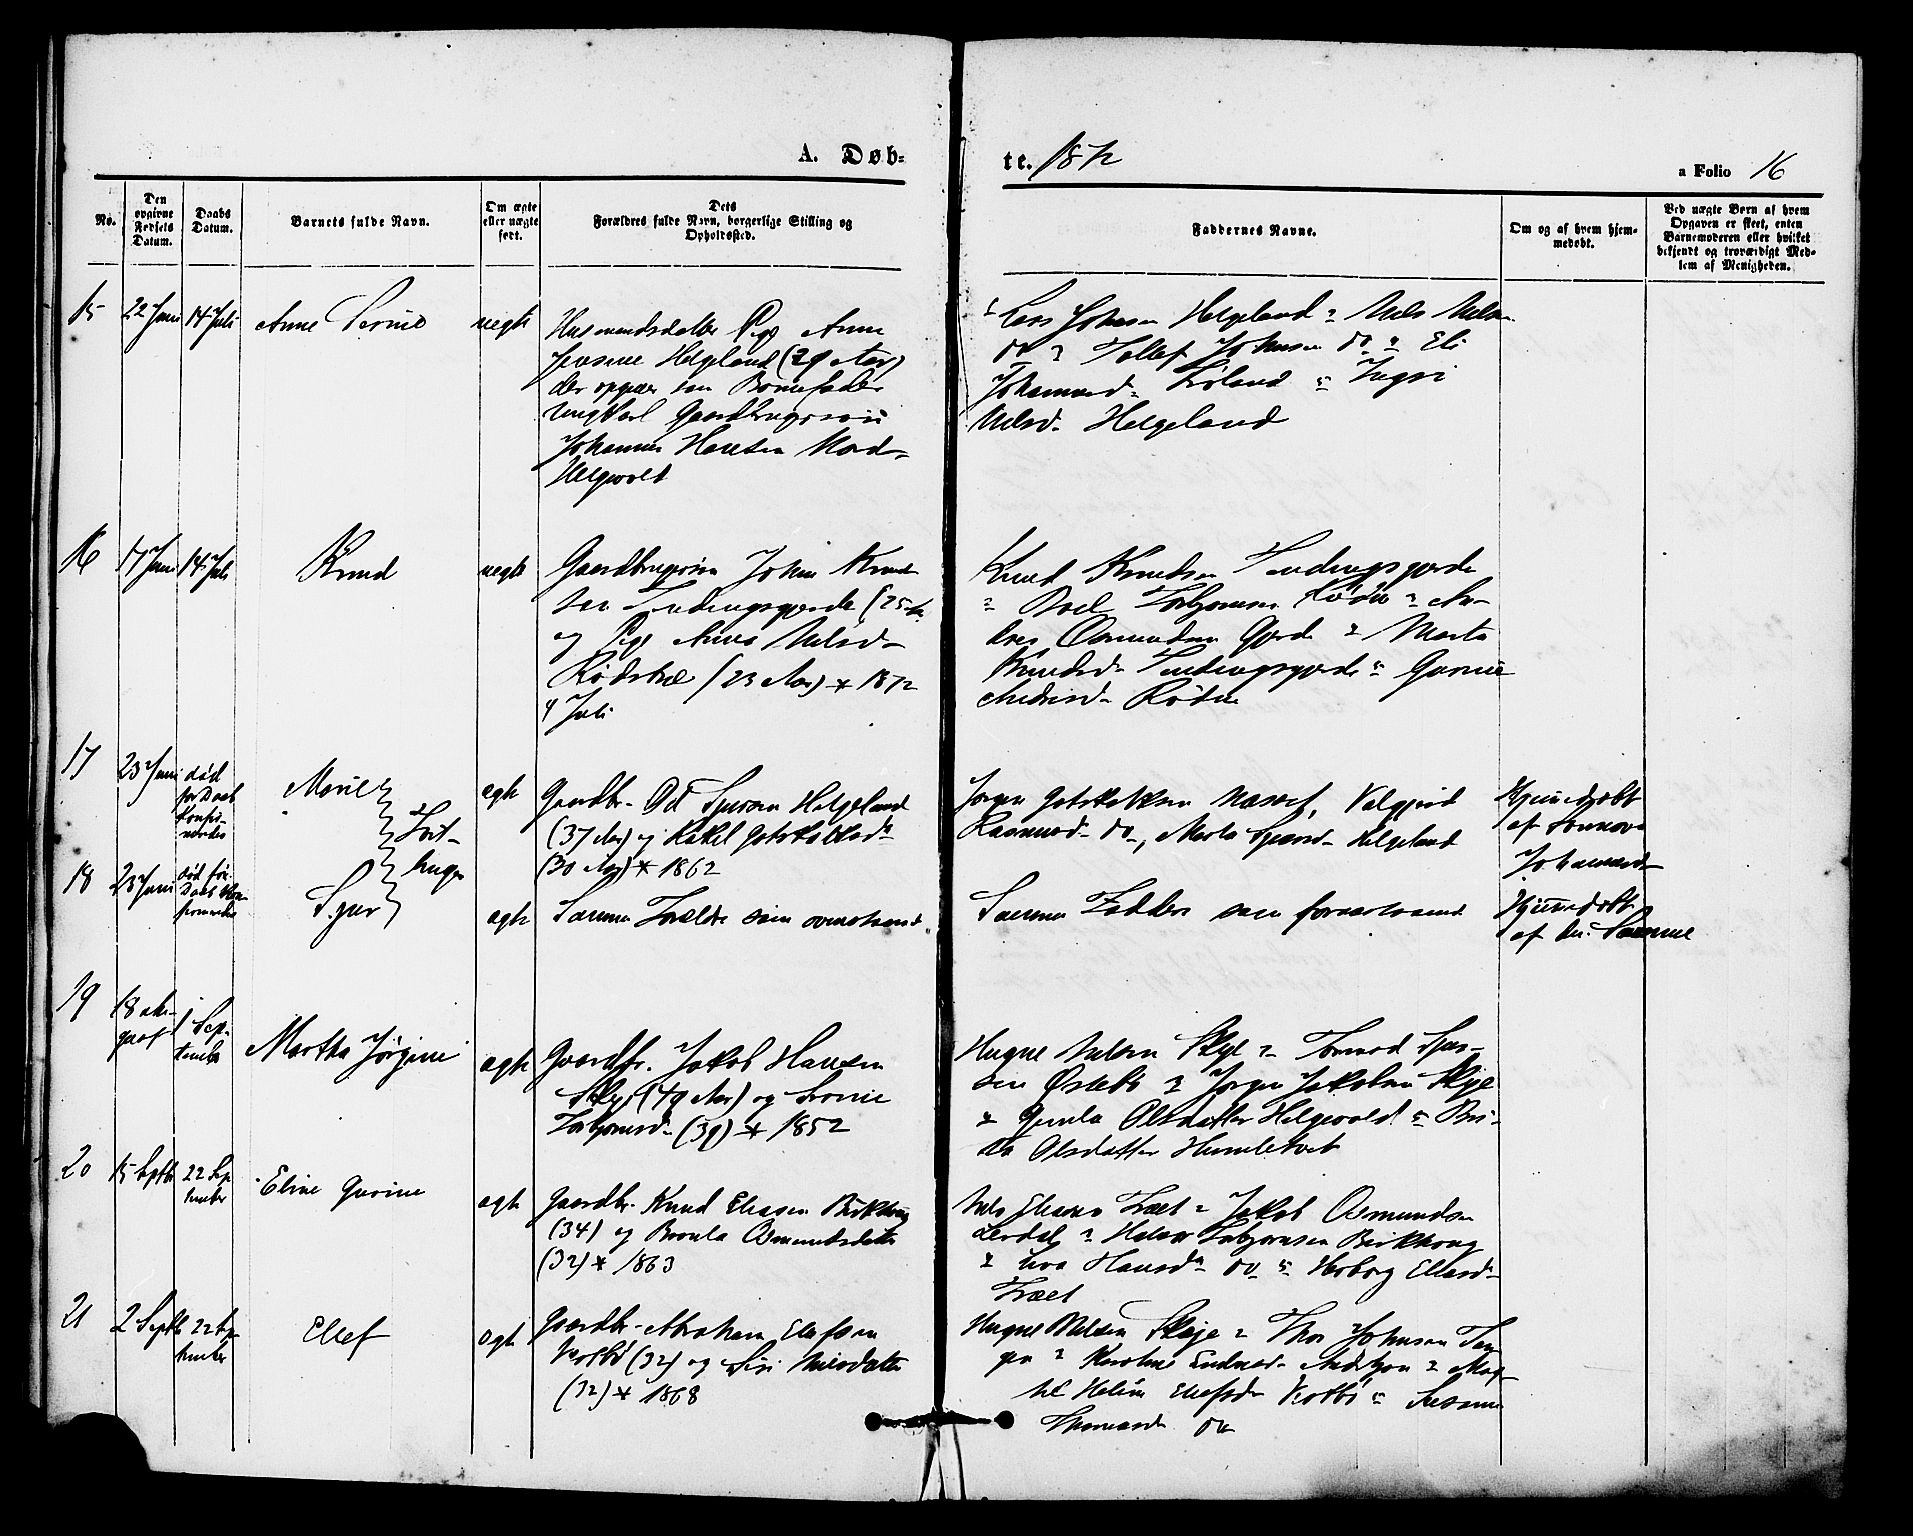 A. Døb-
te. 1872
a Folio 16
No.
Den opgivne Fødsels Datum.
Daabs Datum.
Barnets fulde Navn.
Om ægte eller uægte født.
Dets Forældres fulde Navn, borgerlige Stilling og Opholdssted.
Faddernes Navne.
Om og af hvem hjemmedøbt.
Ved uægte Børn af hvem Opgaven er skeet, enten Barnemoderen eller hvilket bekjendt og troværdigt Medlem af Menigheden.
15
22 Juni
14 Juli
Anne Serine
uegte
Husmandsdatter Pige Anne
Helgeland (29 Aar)
der opgav som Barnefader
Ungkarl Gaardbrugersøn
Johannes Hansen Nord-
Helgevold
Lars Johnsen Helgeland " Nils Nilsen
do " Tollef Johnsen do " Eli
Johannesd. " Ingri
Nilsd. Helgeland
16
17 Juni
14 Juli
Knud
uegte
Gaardbrugersøn John Knud-
sen Tendingsgjerde (25 Aar)
og Pige Anna Nilsd.
(23 Aar) * 1872
4 Juli
Knud Knudsen Tendingsgjerde
" Torbjørnsen " An-
dres Osmundsen Gjerde " Marta
Knudsd. Tendingsgjerde " Gurine
17
23 Juni
død
før Daab
Konfir-
meredes
Marie
Tvil-
linger
egte
Gaardbr. Od Sjursen Helgeland
(37 Aar) og Rakel Gotskalksd.
(30 Aar) * 1862
Jørgen Gotskalksen Næsset, Valgjerd
Rasmusd. do, Marta Sjursd. Helgeland
Hjemmedøbt
af
Johannesd.
18
23 Juni
død før
Daab Kon-
firmeredes
Sjur
egte
Samme Forældre som ovenstaaende
Samme Faddere som forestaaende
Hjemmedøbt
af den Samme
19
18 Au-
gust
1 Sep-
tember
Martha Jørgine
egte
Gaardbr. Jakob Hansen
Skeje (49 Aar) og
Torbjørnsd. (39) * 1852
Hugne Nilsen Skeje " Tormod Sjur-
sen Østebø " Jørgen Jakobsen Skeje
" Gunla Olsdatter Helgevold " Bri-
ta Olsdatter Humletvet
20
15 Septbr
22 Sep-
tember
Eline Gurine
egte
Gaardbr. Knud Eliasen Birkhoug
(34) og Osmundsdatter
(32) * 1863
Nils Eliasen " Jakob Osmundsen
Lerdal " Halvor Torbjørnsen Birkhoug
" Hansd. do " Herborg Eliasd.
21
2 Septbr
22 Sep-
tember
Ellef
egte
Gaardbr. Abraham Ellefsen
(32) og Siri Nilsdatter
(32) * 1868
Hugne Nilsen Skeje " Thor Johnsen Tun-
" Karoline "
Helene Ellefsd. "
do